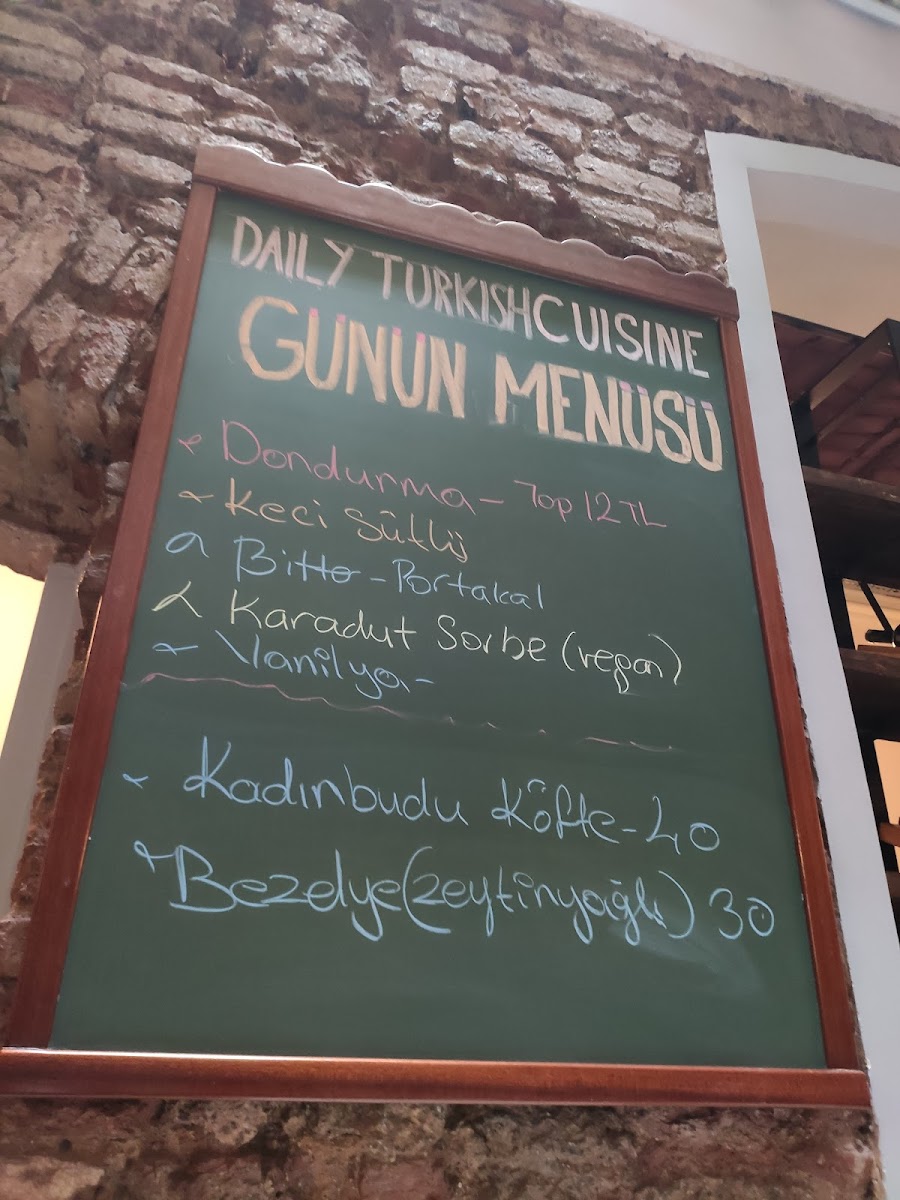 DAILY TURKISH CUISINE
GÜNÜN MENÜSÜ
Dondurma - Top 12 TL
Keci Sütlü
Bitto - Portakal
Karadut Sorbe (vegan)
Vanilya -
Kadınbudu Köfte - 40
Bezelye (zeytinyağlı) 30